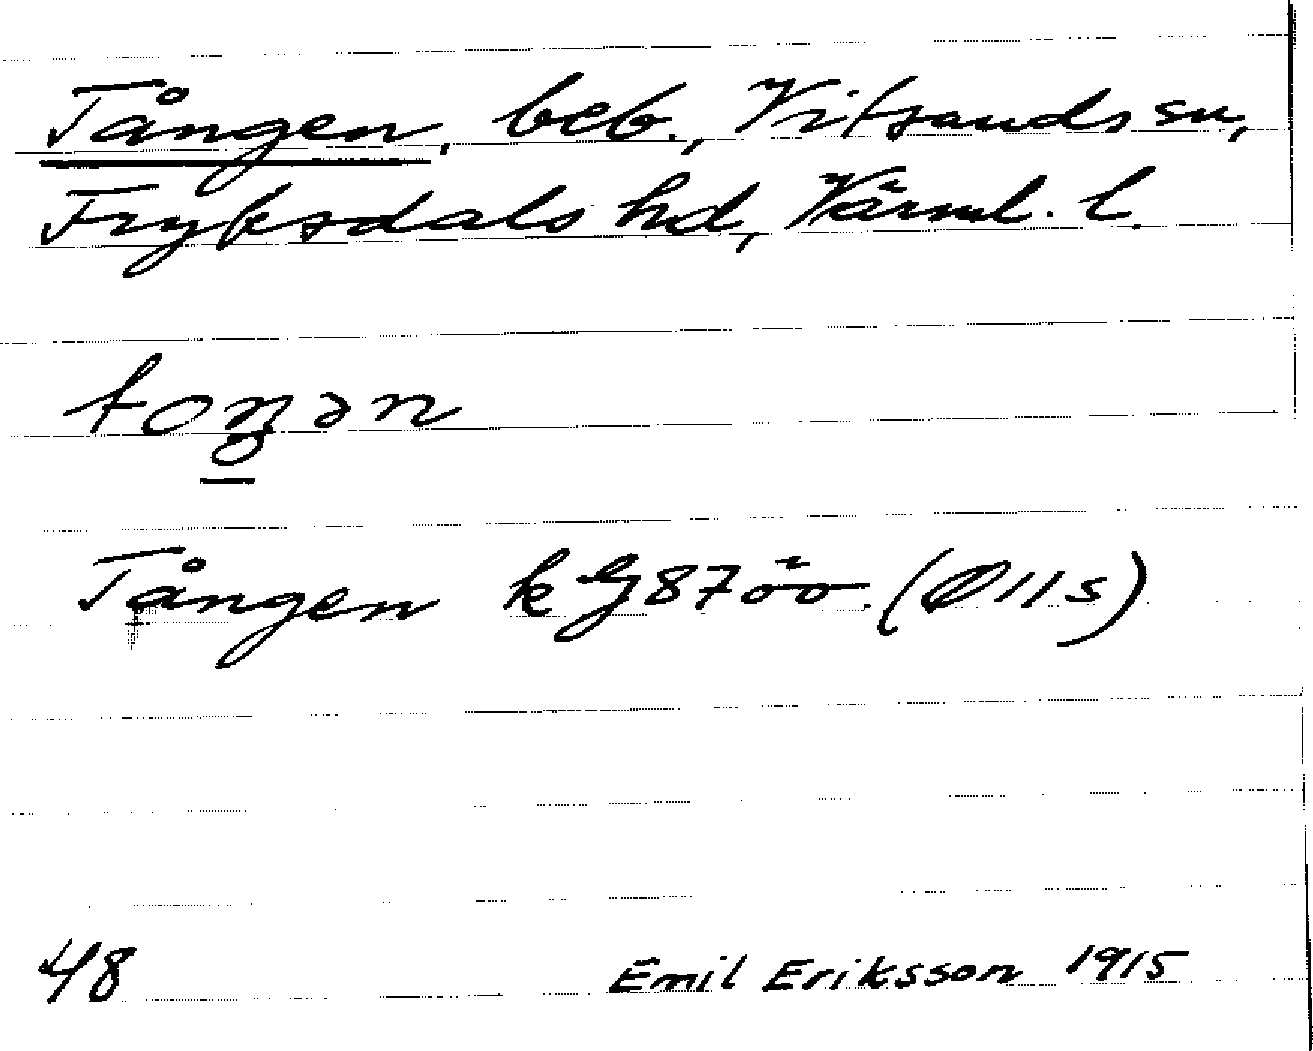 Tången, beb., Vitsands sn,
Fryksdals hd, Värml. l.
toŋən
Tången k G 87 öo. (Ø 11 s)
48 Emil Eriksson 1915